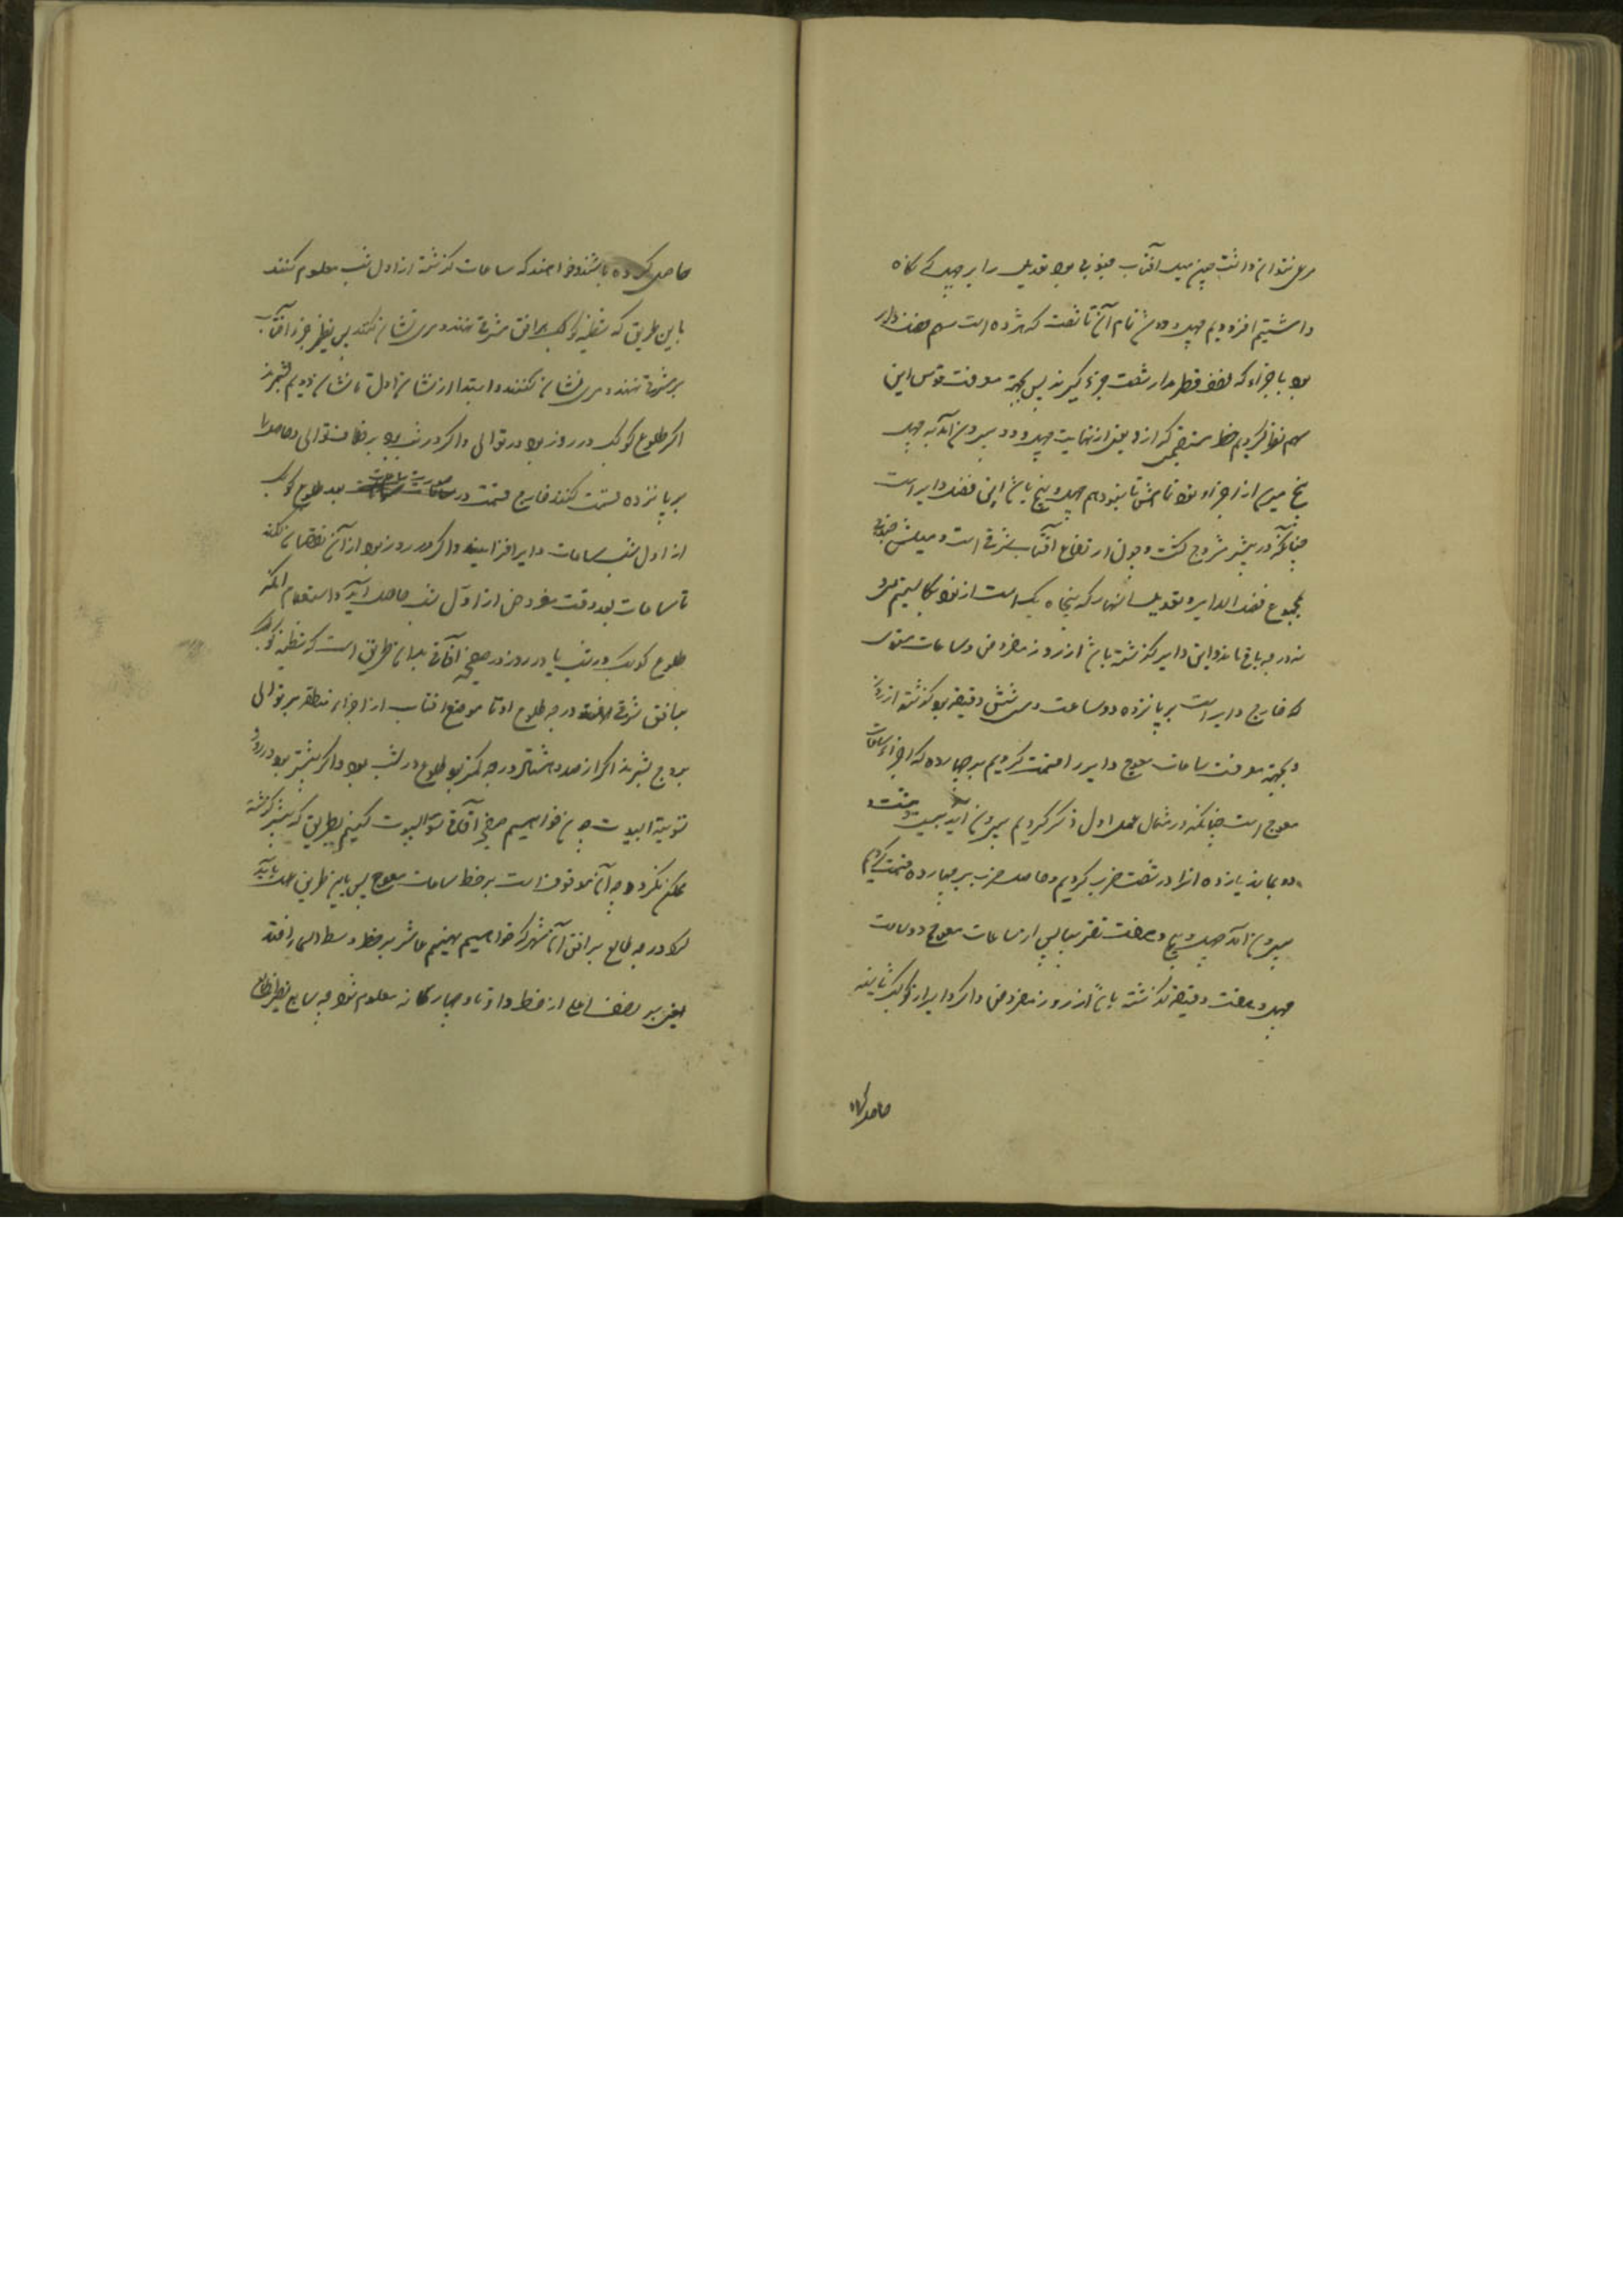 مری نتوان دانست چون میل آفتاب جنوبی بود تعدیل را بر چهل که نگاه
داشتیم افزودیم چهل و دو شد تمام آن تا شصت که هژده است سهم فضل دایر
بود باجزاء که نصف قطر مدار شصت جزء گیرند پس بجهة معرفت قوس این
سهم نظر کردیم خط مستقیمی که از دقیقه از نهایت چهل و دو بیرون آمد به چهل
پنج میرسد از اجزاء قوس تمامش تا بنود هم چهل و پنج باشد این فضل دایر است
چنانکه در پیشتر مشروح گشت و چون ارتفاع آفتاب شرقی است و میلش جنوبی
مجموع فضل الدایر و تعدیل النهار که پنجاه یک است از نود بکاستیم سی و
نه درجه باقی ماند و این دایر گذشته باشد از روز مفروض و ساعات مستوی
که خارج دایر است بر پانزده دو ساعت و سی شش دقیقه بود گذشته از روز
و بجهة معرفت ساعات معوج دایر را قسمت کردیم بر چهارده که اجزاء ساعات
معوج است چنانکه در مثال عمل اول ذکر کردیم بیرون آید
دو بماند یازده آنرا در شصت ضرب کردیم و حاصل ضرب بر چهارده قسمت کردیم
بیرون آمد چهل و هفت تقریبا پس از ساعات معوج دو ساعت
چهل و هفت دقیقه گذشته باشد از روز مفروض و اگر دایر از کواکب ثابته
حاصل کرده
حاصل کرده باشند و خواهند که ساعات گذشته از اول شب معلوم کنند
باین طریق که شظیه کوکب بر افق مشرق نهند و مری نشان کنند پس نظیر جزء آفتاب
بر مشرق نهند و مری نشان کنند و ابتدا از نشان اول تا نشان دویم بشمرند
اگر طلوع کوکب در روز بود در توالی و اگر در شب بود بر خلاف توالی و حاصل را
بر پانزده قسمت کنند خارج قسمت در صورت بعد طلوع کوکب
از اول شب ساعات دایر افزایند و اگر در روز بود از آن نقصان کنند
تا ساعات بعد وقت مفروض از اول شب حاصل آید و استعلام آنکه
طلوع کوکب در شب یا در روز در صفیحه آفاقی بدان طریق است که شظیه کوکب
بر افق مشرق نهند درجه طلوع او تا موضع آفتاب از اجزاء منطقه بر توالی
بروج بشمرند اگر از صد و هشتاد درجه کمتر بود طلوع در شب بود و اگر بیشتر بود در روز
تسویة البیوت چون خواهیم صفیحه آفاقی تسویة البیوت کنیم بطریق که پیشتر گذشته
ممکن نگردد چه آن موقوف است بر خط ساعات معوج پس باین طریق عمل باید
کرد درجه طالع بر افق آن شهر که خواهیم نهیم عاشر بر خط وسط السماء افتد
یعنی بر نصف اعلی از خط و اوتاد چهارگانه معلوم شود چه سابع نظیر طالع